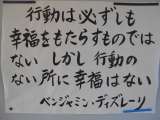 行動は必ずしも
幸福をもたらすものでは
ない しかし 行動の
ない所に幸福はない
ベンジャミン・ディズレーリ